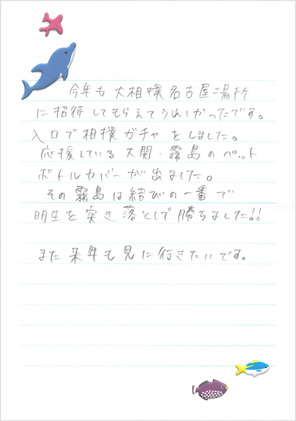 今年も大相撲名古屋場所
に招待してもらえてうれしかったです。
入口で相撲ガチャをしました。
応援している大関・霧島のペット
ボトルカバーが出ました。
その霧島は結びの一番で
明生を突き落としで勝ちました!!
また来年も見に行きたいです。